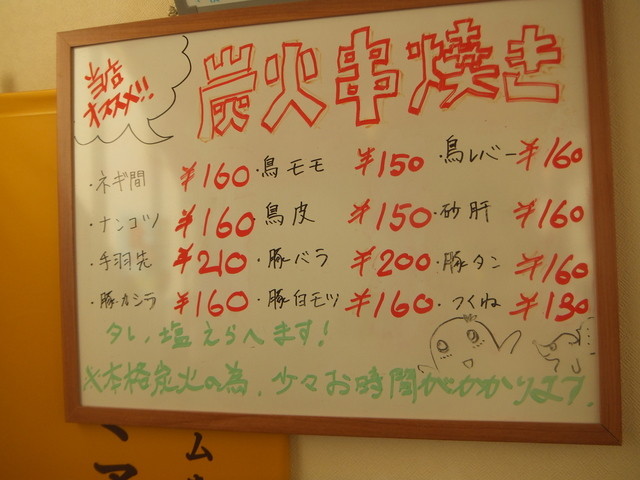 当店
オススメ!!
炭火串焼き
・ネギ間 ¥160 ・鳥モモ ¥150 ・鳥レバー ¥160
・ナンコツ ¥160 ・鳥皮 ¥150 ・砂肝 ¥160
・手羽先 ¥210 ・豚バラ ¥200 ・豚タン ¥160
・豚カシラ ¥160 ・豚白モツ ¥160 ・つくね ¥130
タレ、塩えらべます!
※本格炭火の為、少々お時間がかかります。